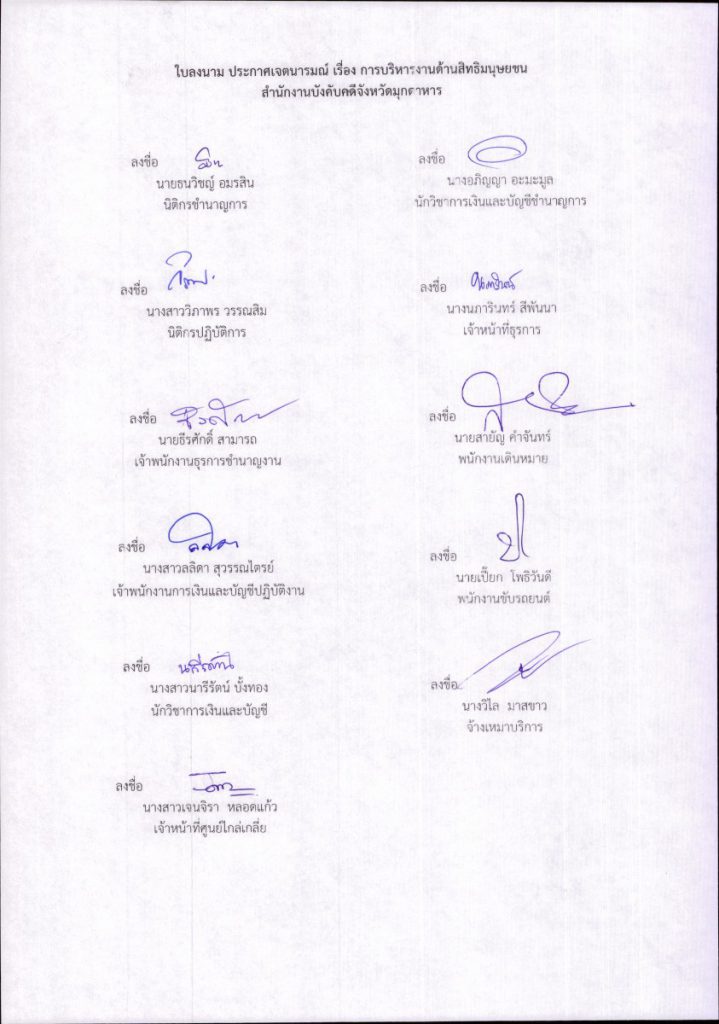 ใบลงนาม ประกาศเจตนารมณ์ เรื่อง การบริหารงานด้านสิทธิมนุษยชน
สำนักงานบังคับคดีจังหวัดมุกดาหาร
ลงชื่อ
นายธนวิชญ์ อมรสิน
นิติกรชำนาญการ
ลงชื่อ
นางอภิญญา อะมะมูล
นักวิชาการเงินและบัญชีชำนาญการ
ลงชื่อ
นางสาววิภาพร วรรณสิม
นิติกรปฏิบัติการ
ลงชื่อ
นางนภารินทร์ สีพันนา
เจ้าหน้าที่ธุรการ
ลงชื่อ
นายธีรศักดิ์ สามารถ
เจ้าพนักงานธุรการชำนาญงาน
ลงชื่อ
นายสายัญ คำจันทร์
พนักงานเดินหมาย
ลงชื่อ
นางสาวลลิดา สุวรรณไตรย์
เจ้าพนักงานการเงินและบัญชีปฏิบัติงาน
ลงชื่อ
นายเปี๊ยก โพธิวันดี
พนักงานขับรถยนต์
ลงชื่อ
นางสาวนารีรัตน์ บั้งทอง
นักวิชาการเงินและบัญชี
ลงชื่อ
นางวิไล มาสขาว
จ้างเหมาบริการ
ลงชื่อ
นางสาวเจนจิรา หลอดแก้ว
เจ้าหน้าที่ศูนย์ไกล่เกลี่ย